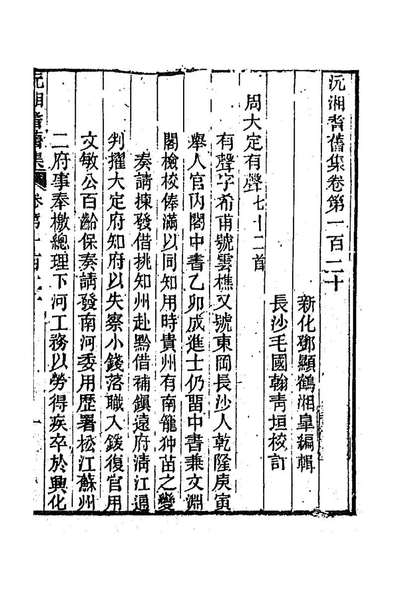 沅湘耆舊集卷第一百二十
新化鄧顯鶴湘皐編輯
長沙毛國翰靑垣校訂
周大定有聲七十二首
有聲字希甫號雲樵又號東岡長沙人乾隆庚寅
舉人官內閣中書乙卯成進士仍畱中書兼文淵
閣檢校俸滿以同知用時貴州有南籠狆苗之變
奏請揀發借挑知州赴黔借補鎭遠府淸江通
判擢大定府知府以失察小錢落職入鋑復官用
文敏公百齡保奏請發南河委用歷署松江蘇州
二府事奉檄總理下河工務以勞得疾卒於興化
沅湘耆舊集